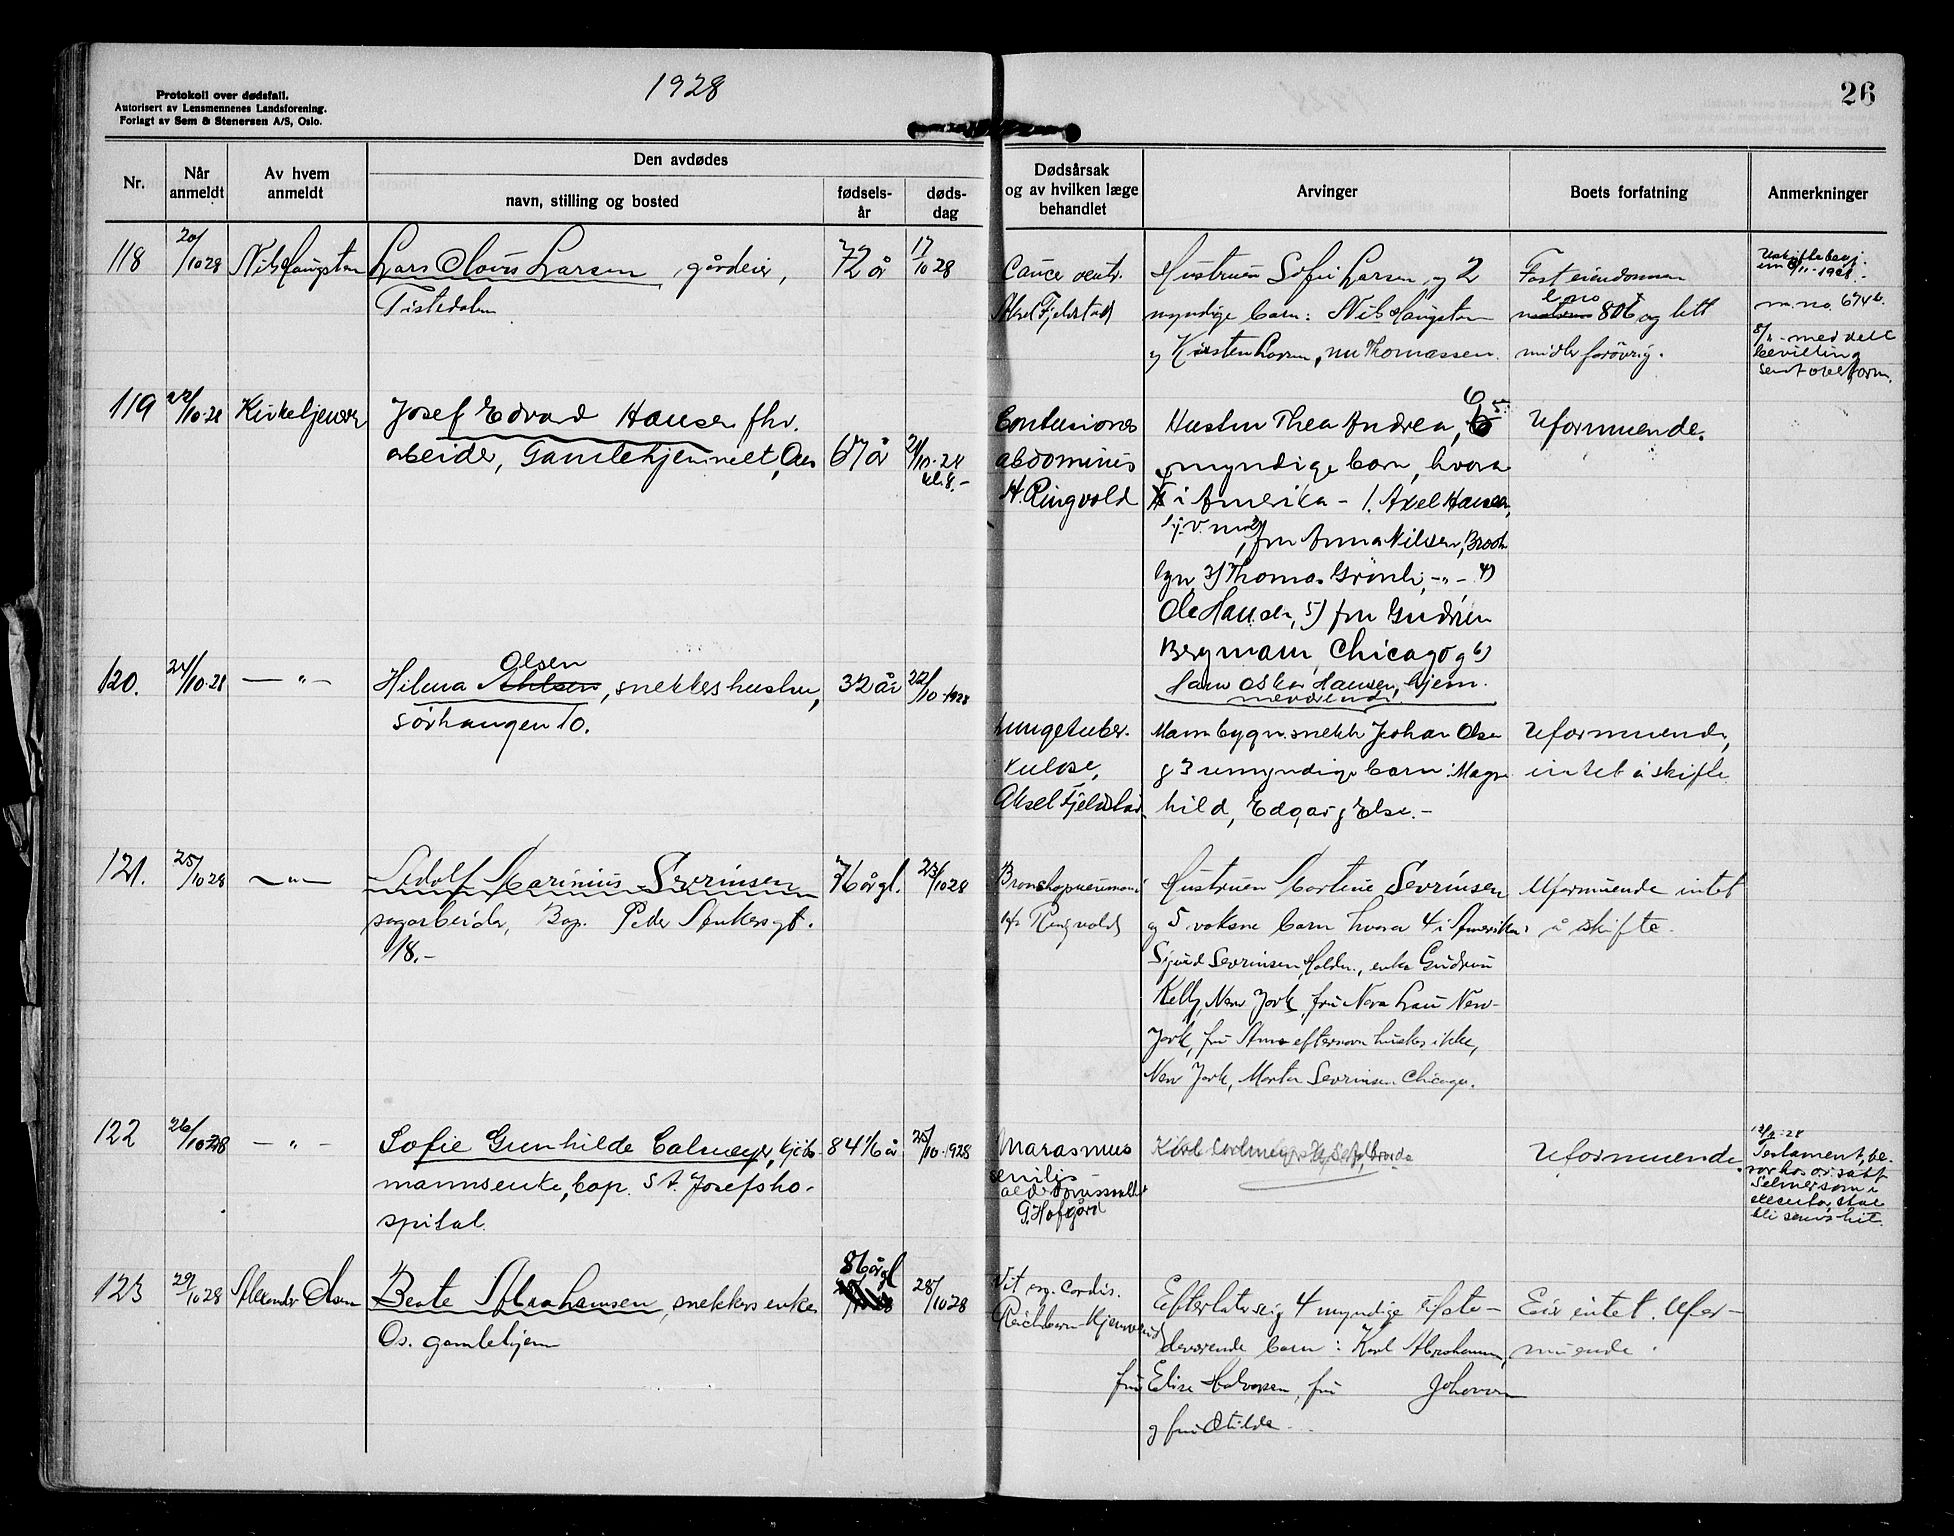 1928
26
Protokoll over dødsfall.
Autorisert av Lensmennenes Landsforening.
Forlagt av Sem & Stenersen A/S, Oslo.
Nr.
Når anmeldt
Av hvem anmeldt
Den avdødes
navn, stilling og bosted
fødsels-år
døds-dag
Dødsårsak og av hvilken læge behandlet
Arvinger
Boets forfatning
Anmerkninger
118
20/10 28
Nils Haugsten
Lars Claus Larsen, gårdeier,
Tistedalen
72 år
17/10 28
Cancer ventr.
Aksel Fjeldstad
Hustruen Sofie Larsen og 2
myndige barn: Nils Haugsten
og Kirsten Larsen, nu Thomassen.
Fast eiendommen
806 og litt
midler forøvrig.
m. no. 674 b.
8/11 - med delt
bevilling
119
22/10-28
Kirketjener
Josef Edvard Hansen fhv.
arbeider, Gamlehjemmet, Os
67 år
21/10-28
kl. 8.-
Contusiones
abdominis
H. Ringvold
Hustru Thea Andrea, 6
myndige barn, hvorav
i Amerika - 1. Axel Hansen,
fru Anna Nilsen, Brook-
lyn, 3) Thomas Grønli, -"- 4)
Ole Hansen, 5) fru Gudrun
Bergmann, Chicago og 6)
Hans Oskar Hansen, hjem-
meværende.
Uformuende.
120.
24/10-28
- " -
Olsen
Hilma, snekkers hustru,
Sørhaugen 10.
32 år
22/10-1928
Lungetuber-
kulose,
Aksel Fjeldstad.
Mann bygn. snekk Johan Olsen
og 3 umyndige barn: Magn-
hild, Edgar og Else.-
Uformuende,
intet å skifte
121.
25/10 28
- " -
Adolf Marinius Sevrinsen
sagarbeider, Bop. Peder Ankersgt.
18.-
76 år gl.
23/10 28
Bronchopneumoni
Ringvold
Hustruen Martine Sevrinsen
og 5 voksne barn hvorav 4 i Amerika:
Sigurd Sevrinsen, Halden, enke Gudrun
Kelly, New York, fru Nora Lau New-
York, fru Anna efternavn huskes ikke,
New York, Morten Sevrinsen Chicago.
Uformuende intet
å skifte.
122
26/10 28
- " -
Sofie Gunhilde Calmeyer, kjøb-
mannsenke, bop. St. Josefsho-
spital.
84 1/6 år
25/10-1928
Marasmus
senilis
G. Hofgård
Uformuende
12/11-28
Testament, be-
ror hos o.r.sakf.
Selmer som i
executor, skal
bli sendt hit.
123
29/10 28
Alexander Olsen
Beate Abrahamsen, snekkers enke
Os. gamlehjem
86 år gl
28/10 28
Vit. org. cordis.
Reichborn-Kjennerud
Efterlater seig 4 myndige tilste-
deværende barn: Karl Abrahamsen,
fru Elise Halvorsen, fru Johanna
og fru Otilde
Eier intet. Ufor-
muende.